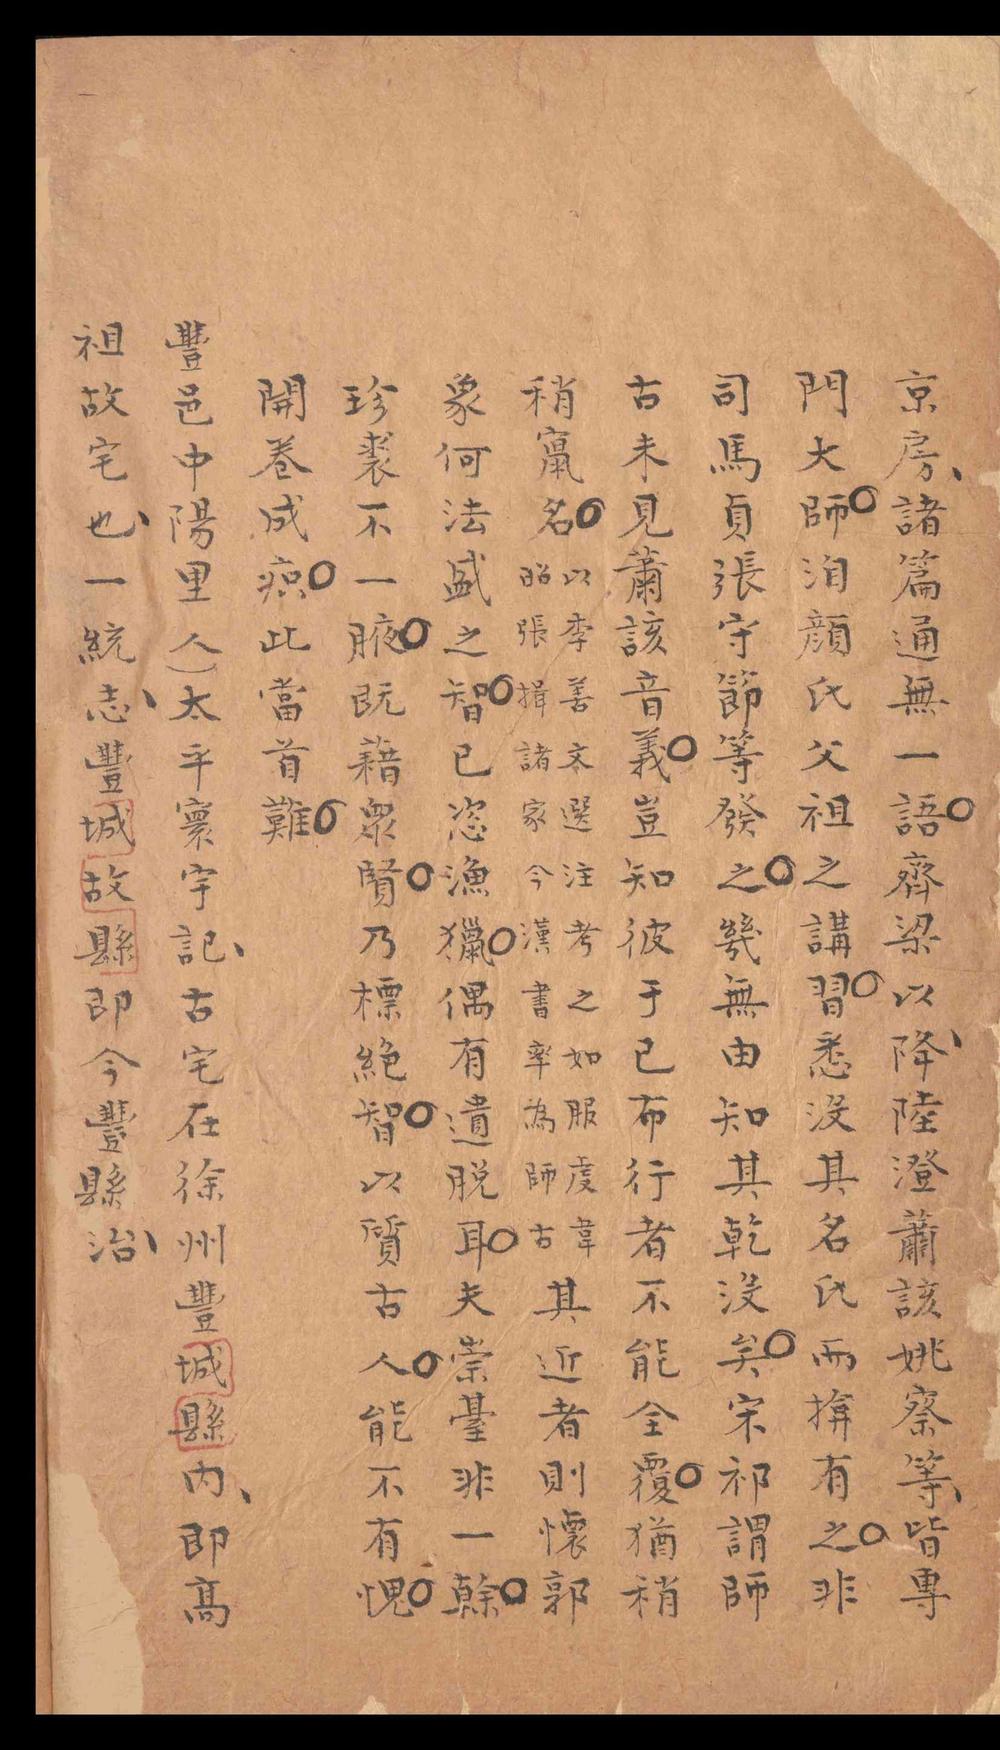 京房諸篇通無一語齊梁以降陸澄蕭該姚察等皆專
門大師洎顏氏父祖之講習悉沒其名氏而揜有之非
司馬貞張守節等發之幾無由知其乾沒矣宋祁謂師
古未見蕭該音義豈知彼于已布行者不能全覆猶稍
稍竄名以李善文選注考之如服虔韋昭張揖諸家今漢書率為師古其近者則懷郭
象何法盛之智已恣漁獵偶有遺脫耳夫崇臺非一榦
珍裘不一腋既藉衆賢乃標絶智以質古人能不有愧
開卷成㾗此當首難
豐邑中陽里人太平寰宇記古宅在徐州豐城縣內即髙
祖故宅也一統志豐城故縣即今豐縣治